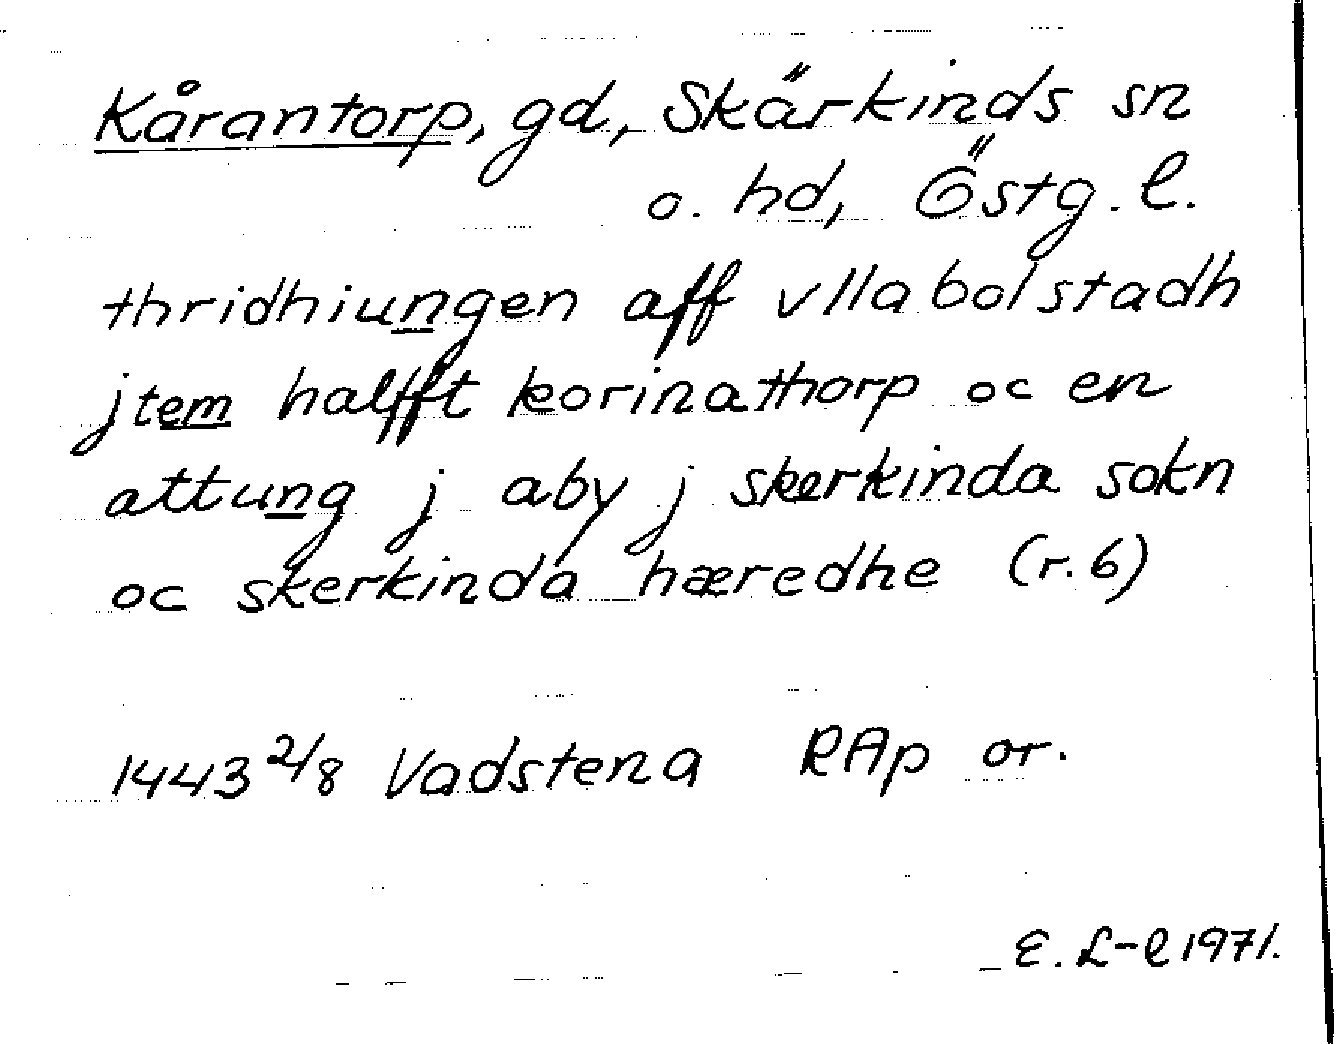 Kårantorp, gd, Skärkinds sn
o. hd, Östg. l.
thridhiungen aff vlla bolstadh
jtem halfft korinathorp oc en
attung j aby j skerkinda sokn
oc skerkinda hæredhe (r. 6)
1443 2/8 Vadstena RAp or.
E. L-l 1971.